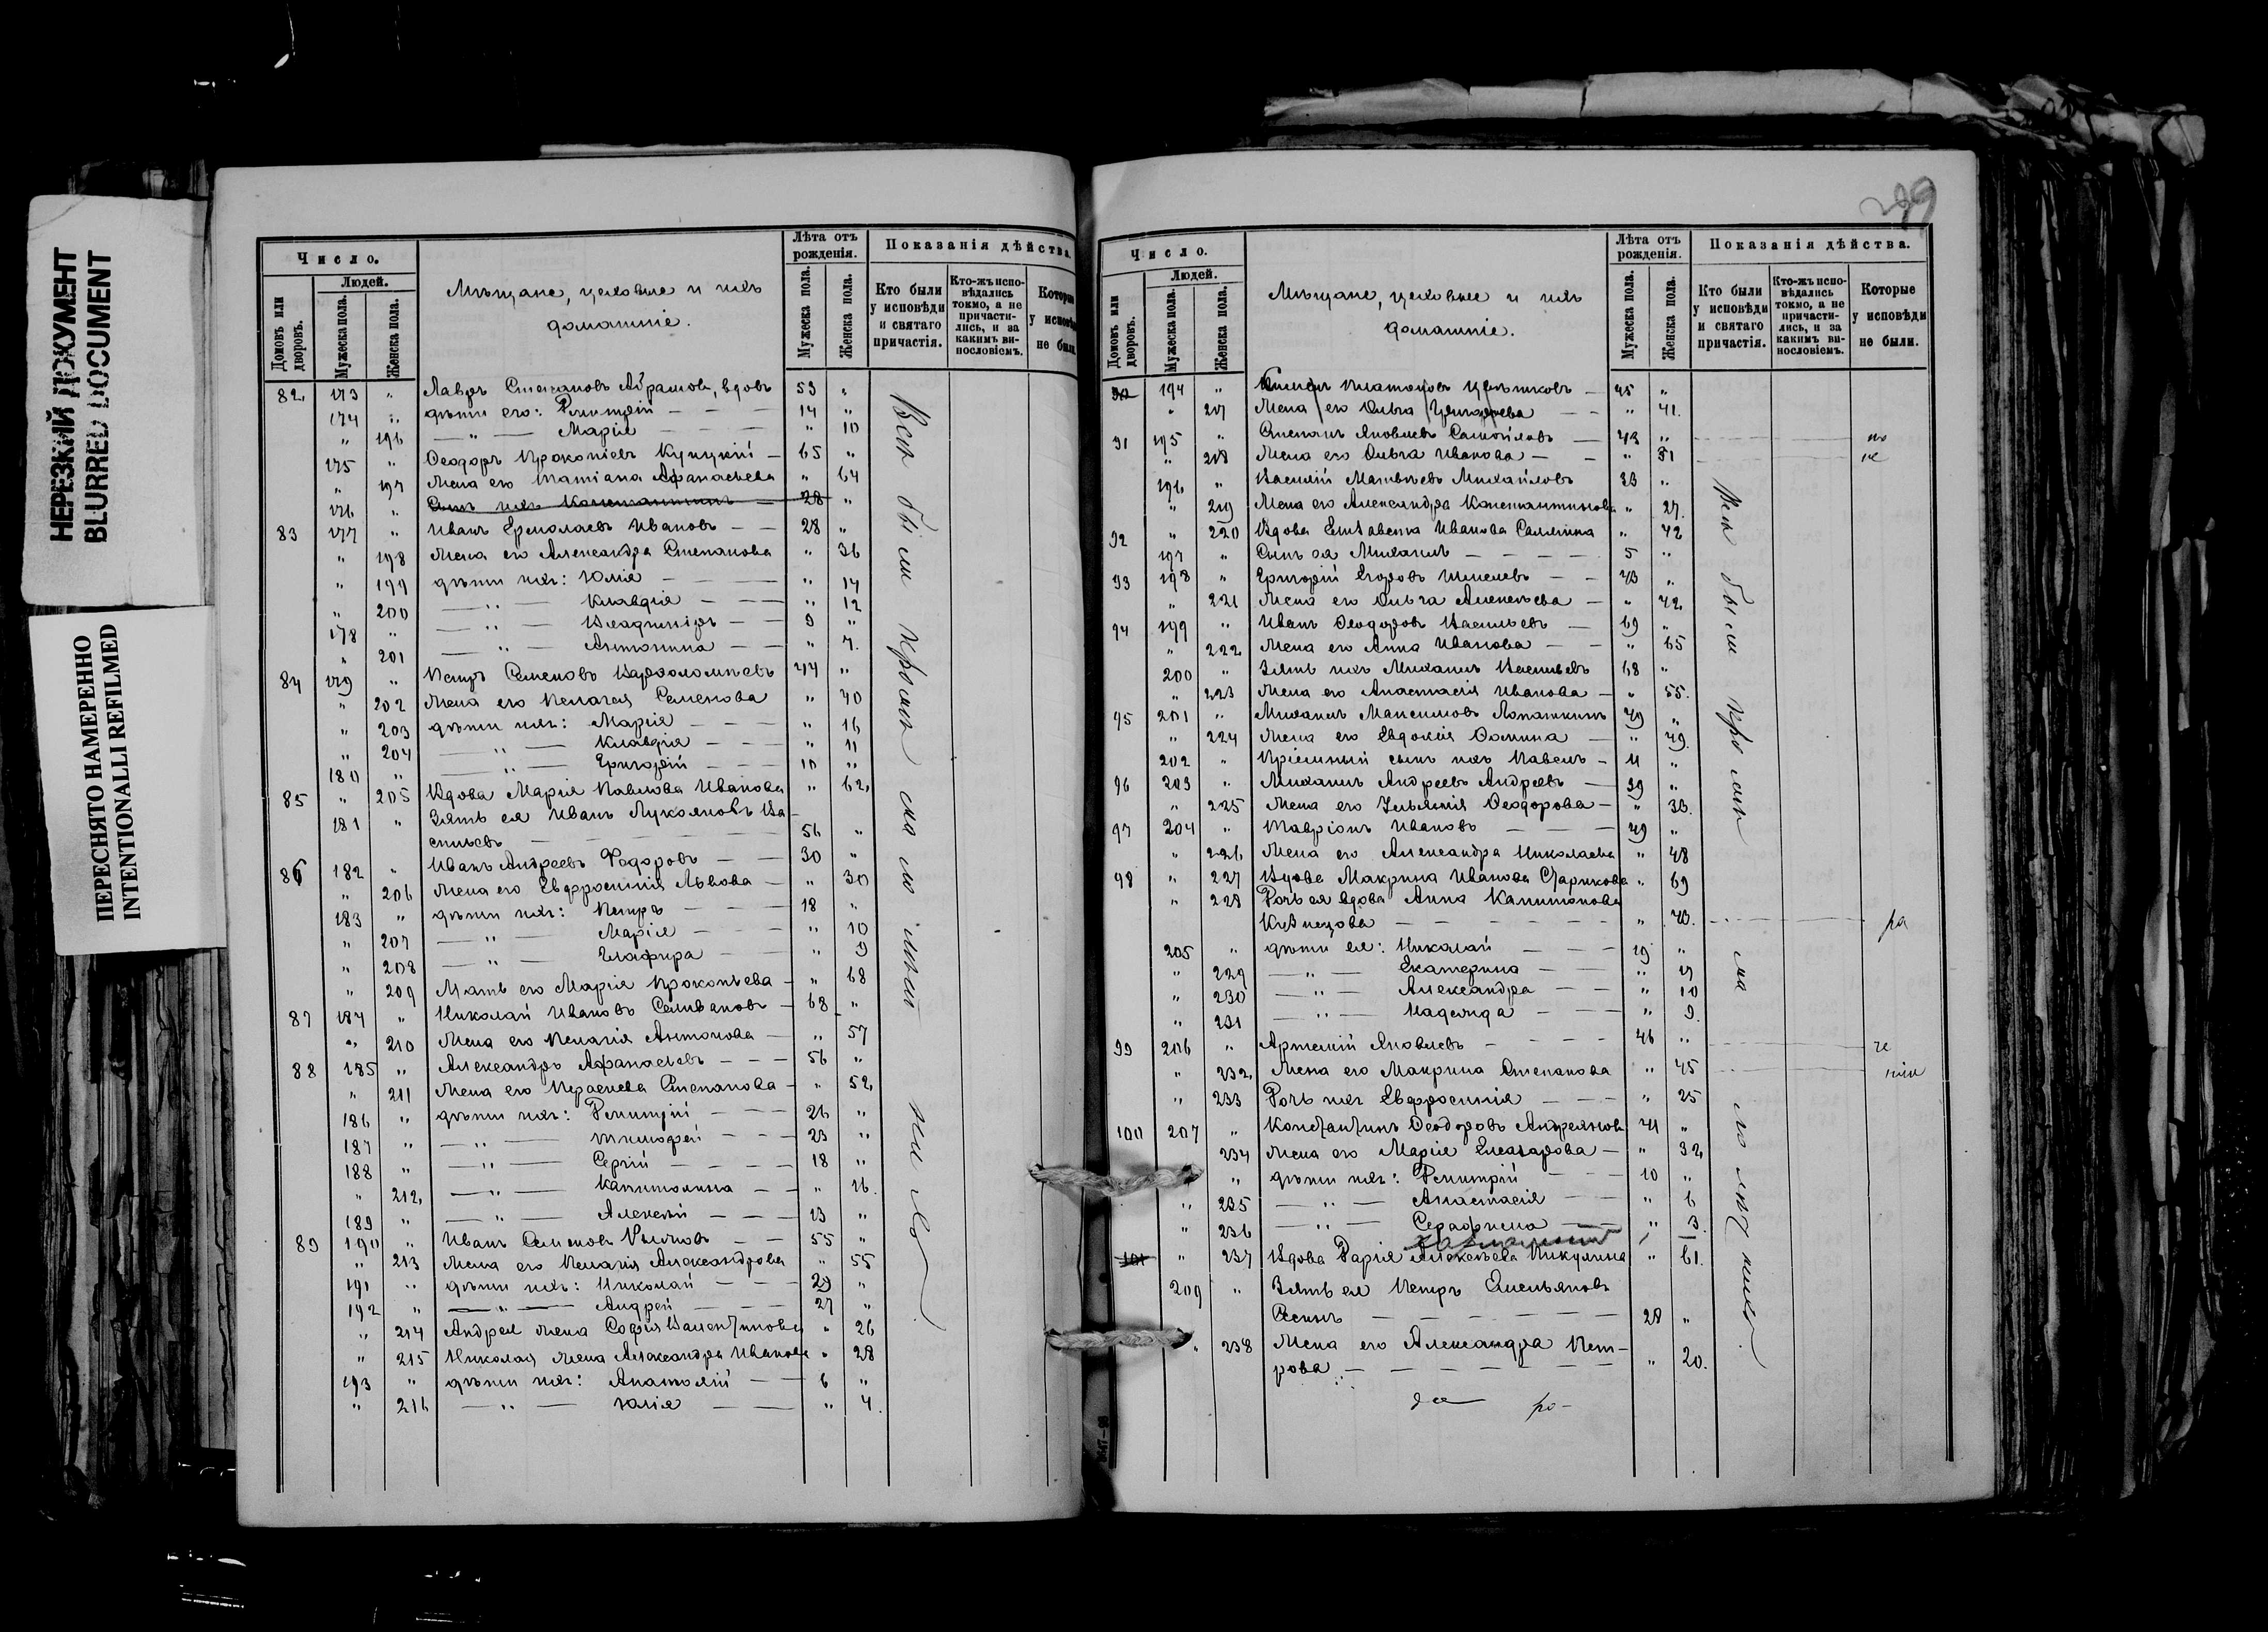 НЕРЕЗКИЙ ДОКУМЕНТ
BLURRED DOCUMENT
ПЕРЕСНЯТО НАМЕРЕННО
INTENTIONALLI REFILMED
Число.
Людей.
Домовъ или дворовъ.
Мужеска пола.
Женска пола.
Мѣщане, цеховые и ихъ
домашніе.
Лѣта отъ рожденія.
Мужеска пола.
Женска пола.
Показанія дѣйства.
Кто были у исповѣди и святаго причастія.
Кто-жъ исповѣдались токмо, а не причастились, и за какимъ винословіемъ.
Которые у исповѣди не были.
82 173 " Лавръ Степановъ Абрамовъ, вдовъ 53 "
174 " дѣти его: Димитрій 14 "
" 196 — " — Марія " 10
175 " Ѳеодоръ Прокопіевъ Купцкій 65 "
" 197 Жена его Татіана Афанасьева " 64
176 " Сынъ ихъ Константинъ 28 "
83 177 " Иванъ Ермолаевъ Ивановъ 28 "
" 198 Жена его Александра Степанова " 36
" 199 дѣти ихъ: Юлія " 14
" 200 — " — Клавдія " 12
178 " — " — Владиміръ 9 "
" 201 — " — Антонина " 7.
84 179 " Петръ Семеновъ Варфоломѣевъ 44 "
" 202 Жена его Пелагія Семенова " 40
" 203 дѣти ихъ: Марія " 16
" 204 — " — Клавдія " 11
180 " — " — Григорій 10 "
85 " 205 Вдова Марія Павлова Иванова " 62
181 " Зять ея Иванъ Лукояновъ Ва-
сильевъ 56 "
86 182 " Иванъ Андреевъ Ѳедоровъ 30 "
" 206 Жена его Евфросинія Львова " 30
183 " дѣти ихъ: Петръ 18 "
" 207 — " — Марія " 10
" 208 — " — Глафира " 9
" 209 Мать его Марія Прокопьева " 68
87 184 " Николай Ивановъ Селивановъ 68 "
" 210 Жена его Пелагія Антонова " 57
88 185 " Александръ Афанасьевъ 56 "
" 211 Жена его Параскева Степанова " 52
186 " дѣти ихъ: Димитрій 26 "
187 " — " — Тимофей 23 "
188 " — " — Сергій 18 "
" 212 — " — Капитолина " 16.
189 " — " — Алексѣй 13 "
89 190 " Иванъ Семеновъ 55 "
" 213 Жена его Пелагія Александрова " 55
191 " дѣти ихъ: Николай 29 "
192 " — " — Андрей 27 "
" 214 Андрея жена Софія Валентинова " 26
" 215 Николая жена Александра Иванова " 28
193 " дѣти ихъ: Анатолій 6 "
" 216 — " — Юлія " 4.
Всѣ были
Число.
Людей.
Домовъ или дворовъ.
Мужеска пола.
Женска пола.
Мѣщане, цеховые и ихъ
домашніе.
Лѣта отъ рожденія.
Мужеска пола.
Женска пола.
Показанія дѣйства.
Кто были у исповѣди и святаго причастія.
Кто-жъ исповѣдались токмо, а не причастились, и за какимъ винословіемъ.
Которые у исповѣди не были.
90 194 " Платоновъ 45 "
" 217 Жена его Ольга Григорьева " 41.
91 195 " Степанъ Яковлевъ Самойловъ 43 "
" 218 Жена его Ольга Иванова " 31
196 " Василій Матвѣевъ Михайловъ 33 "
" 219 Жена его Александра Константинова " 27.
92 " 220 Вдова Елисавета Иванова " 42
197 " Сынъ ея Михаилъ 5 "
93 198 " Григорій Егоровъ Шмелевъ 43 "
" 221 Жена его Ольга Алексѣева " 42
94 199 " Иванъ Ѳеодоровъ Васильевъ 69 "
" 222 Жена его Анна Иванова " 65
200 " Зять ихъ Михаилъ Васильевъ 68 "
" 223 Жена его Анастасія Иванова " 55.
95 201 " Михаилъ Максимовъ Лопашкинъ 49 "
" 224 Жена его Евдокія Ѳомина " 49.
202 " Пріемный сынъ ихъ Павелъ 11 "
96 203 " Михаилъ Андреевъ Андреевъ 39 "
" 225 Жена его Ульянія Ѳеодорова " 33.
97 204 " Ивановъ 49 "
" 226 Жена его Александра Николаева " 48
98 " 227 Вдова Макрина Иванова Старикова " 69
" 228 Дочь ея вдова Анна Капитонова
Кузнецова " 43.
205 " дѣти ея: Николай 19 "
" 229 — " — Екатерина " 17
" 230 — " — Александра " 10
" 231 — " — Надежда " 9.
99 206 " Артемій Яковлевъ 46 "
" 232 Жена его Макрина Степанова " 45
" 233 Дочь ихъ Евфросинія " 25
100 207 " Константинъ Ѳеодоровъ Андреяновъ 41 "
234 Жена его Марія Елеазарова " 32
" дѣти ихъ: Димитрій 10 "
" 235 — " — Анастасія " 6
" 236 — " — Серафима " 3.
101 " 237 Вдова Дарія Алексѣева Никулина " 61.
209 " Зять ея Петръ Емельяновъ
28 "
" 238 Жена его Александра Пет-
рова " 20.
Всѣ были